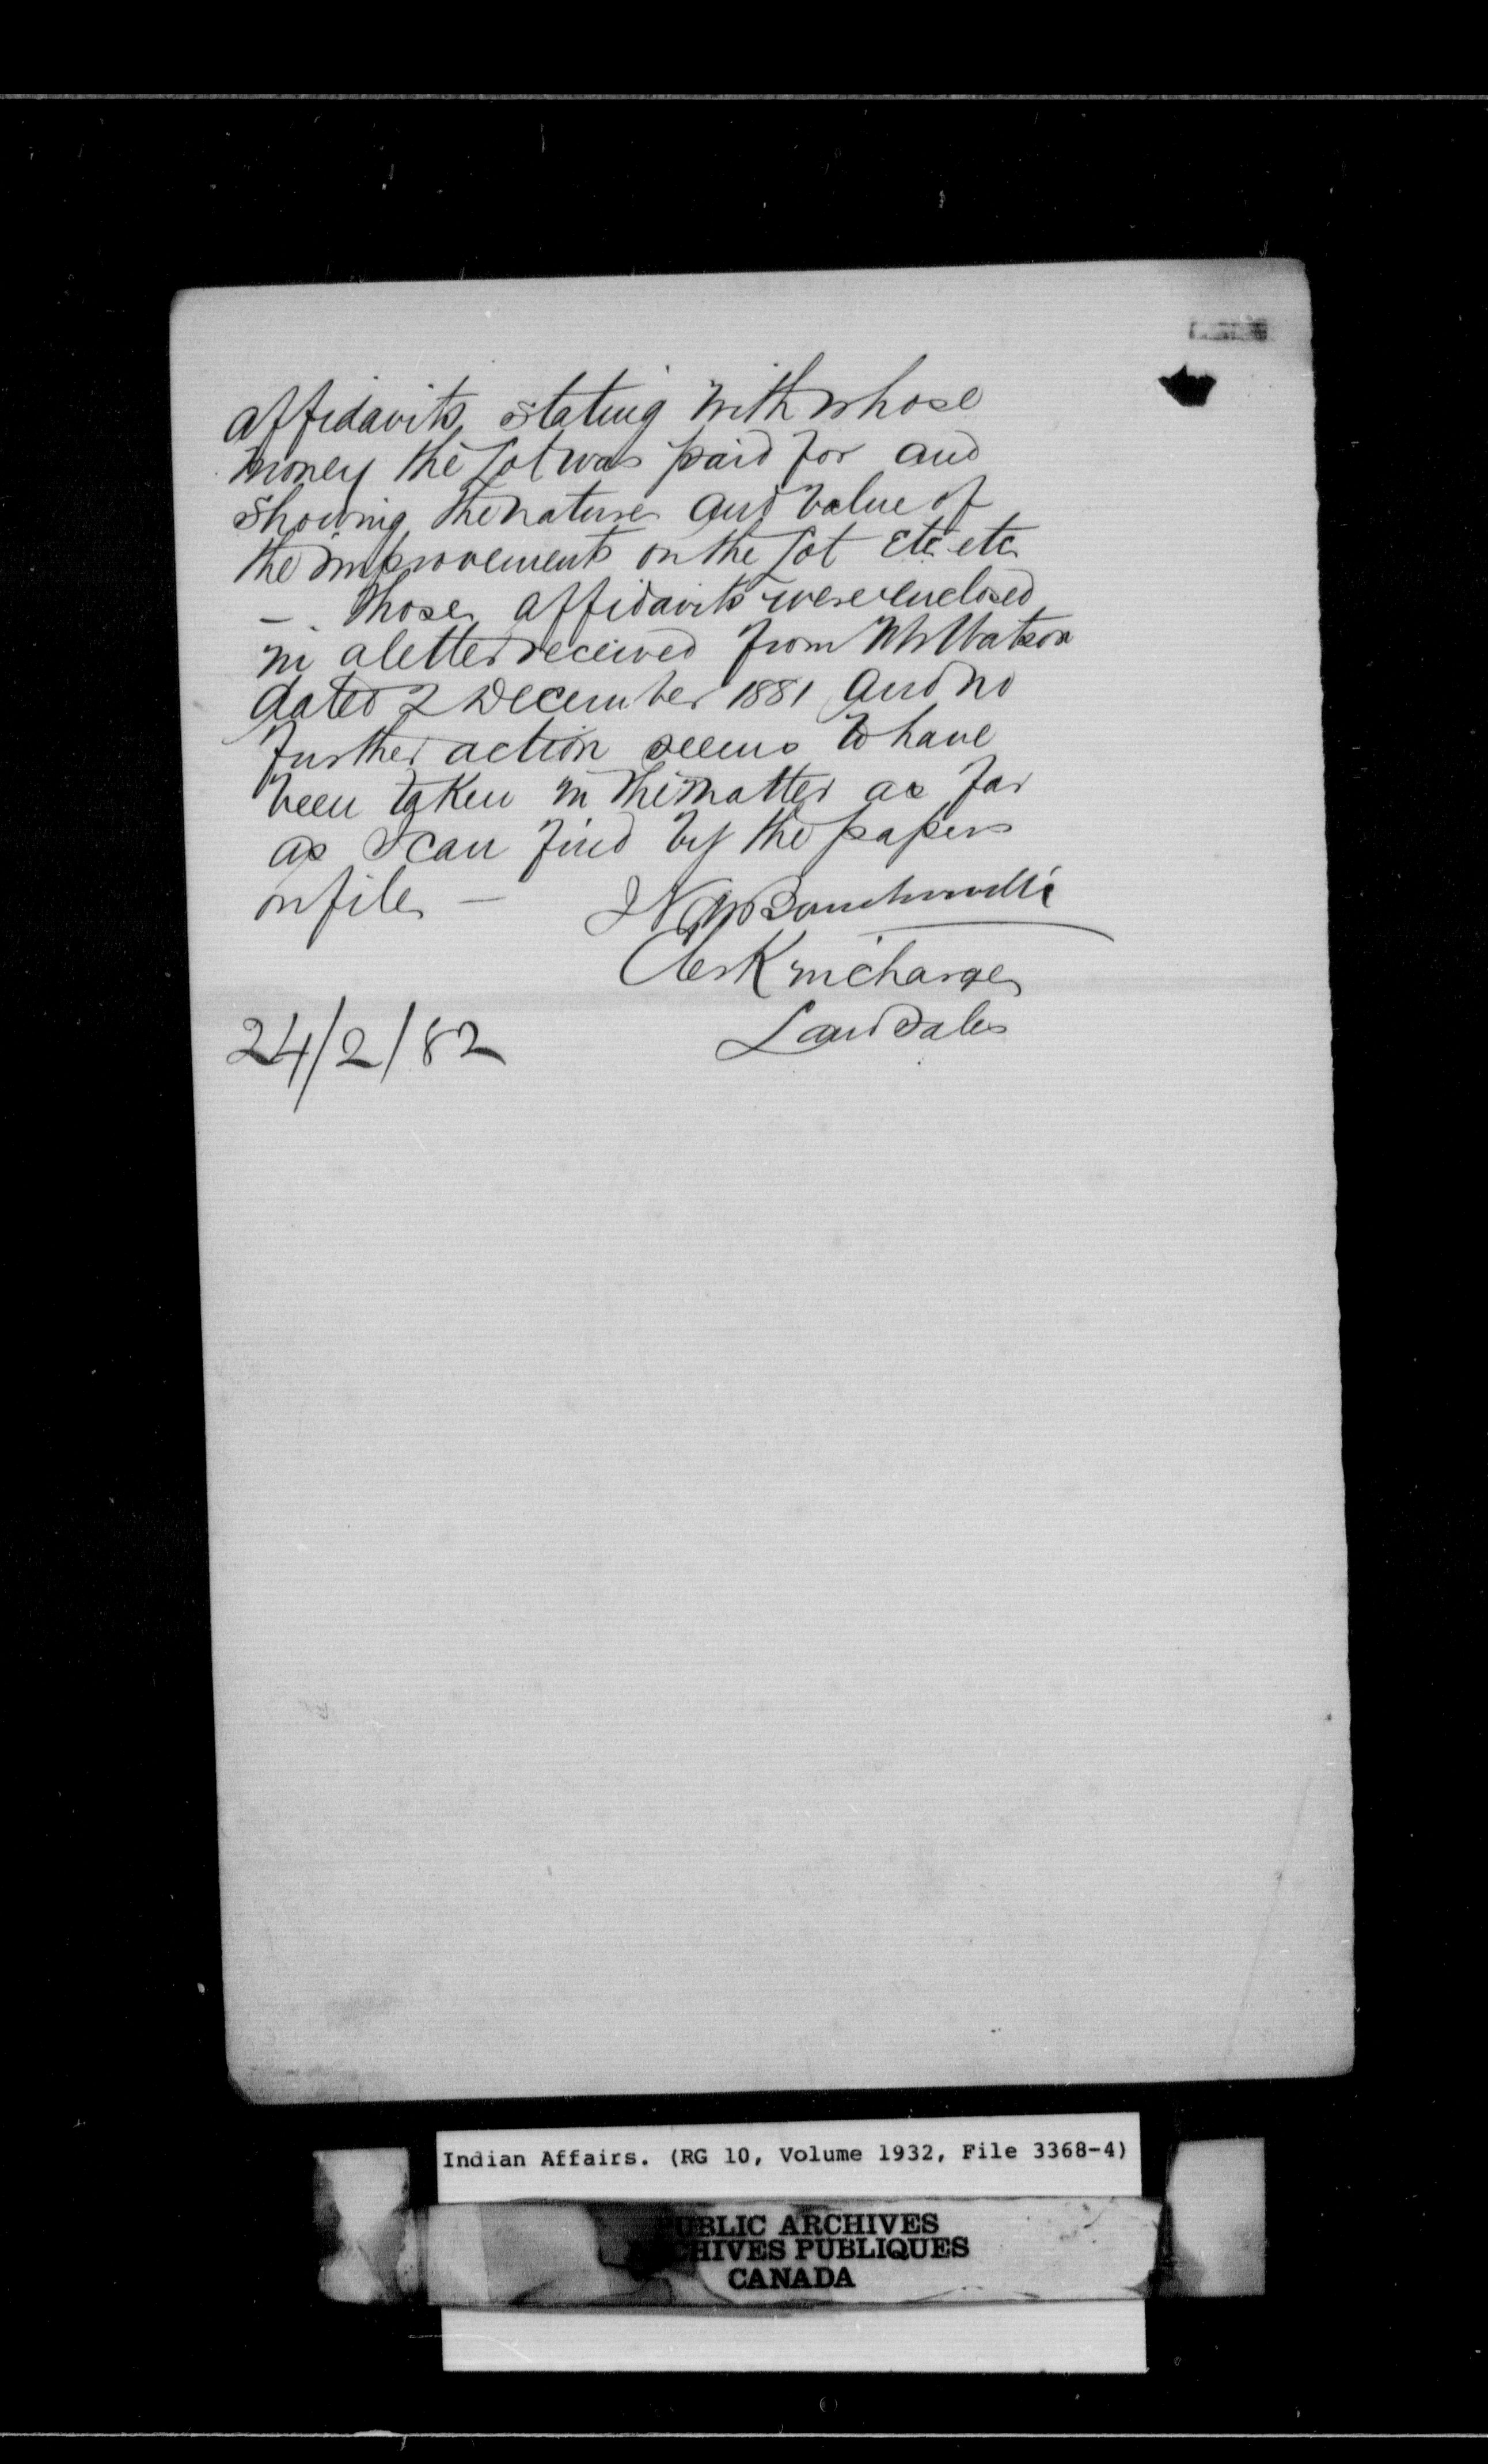 affidavits stating with whose
money the lot was paid for and
showing the nature and value of
the improvements on the lot etc etc
— those affidavits were enclosed
in a letter received from Mr Watson
dated 2 December 1881 and no
further action seems to have
been taken in the matter as far
as I can find by the papers
on file —
Clerk in charge
Land Sales
24/2/82
Indian Affairs. (RG 10, Volume 1932, File 3368-4)
PUBLIC ARCHIVES
ARCHIVES PUBLIQUES
CANADA